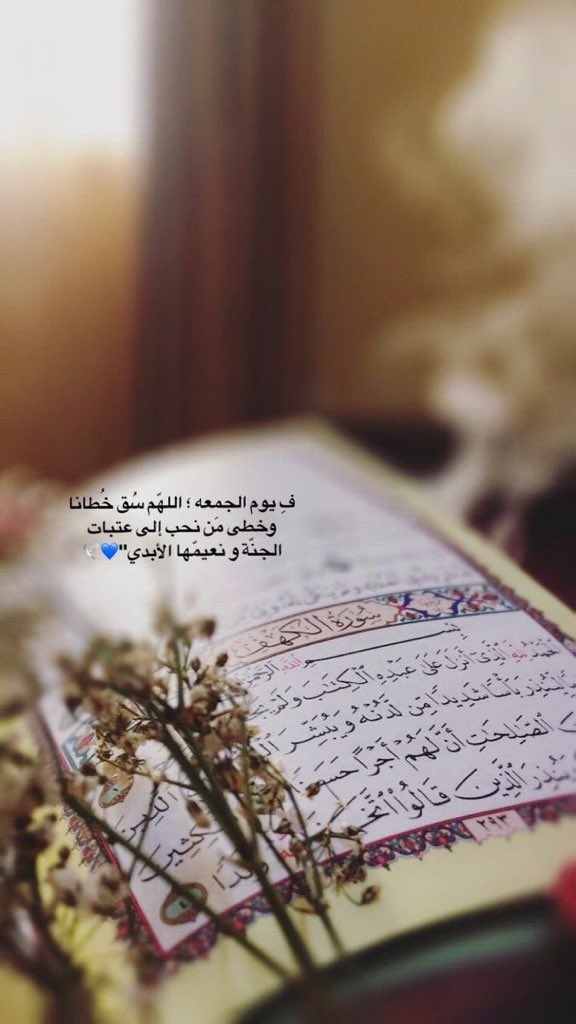 فِ يوم الجمعه ؛ اللهّم سُق خُطانا
وخطى مَن نحب إلى عتبات
الجنّة و نعيمّها الأبدي"💙🕊
سُورَةُ الكَهْفِ
بِسْمِ اللَّهِ الرَّحْمَٰنِ
الَّذِي أَنزَلَ عَلَىٰ عَبْدِهِ الْكِتَٰبَ وَلَمْ
بَأْسًا شَدِيدًا مِّن لَّدُنْهُ وَيُبَشِّرَ
الصَّٰلِحَٰتِ أَنَّ لَهُمْ أَجْرًا حَسَنًا
الَّذِينَ قَالُوا۟ اتَّخَذَ
٢٩٣